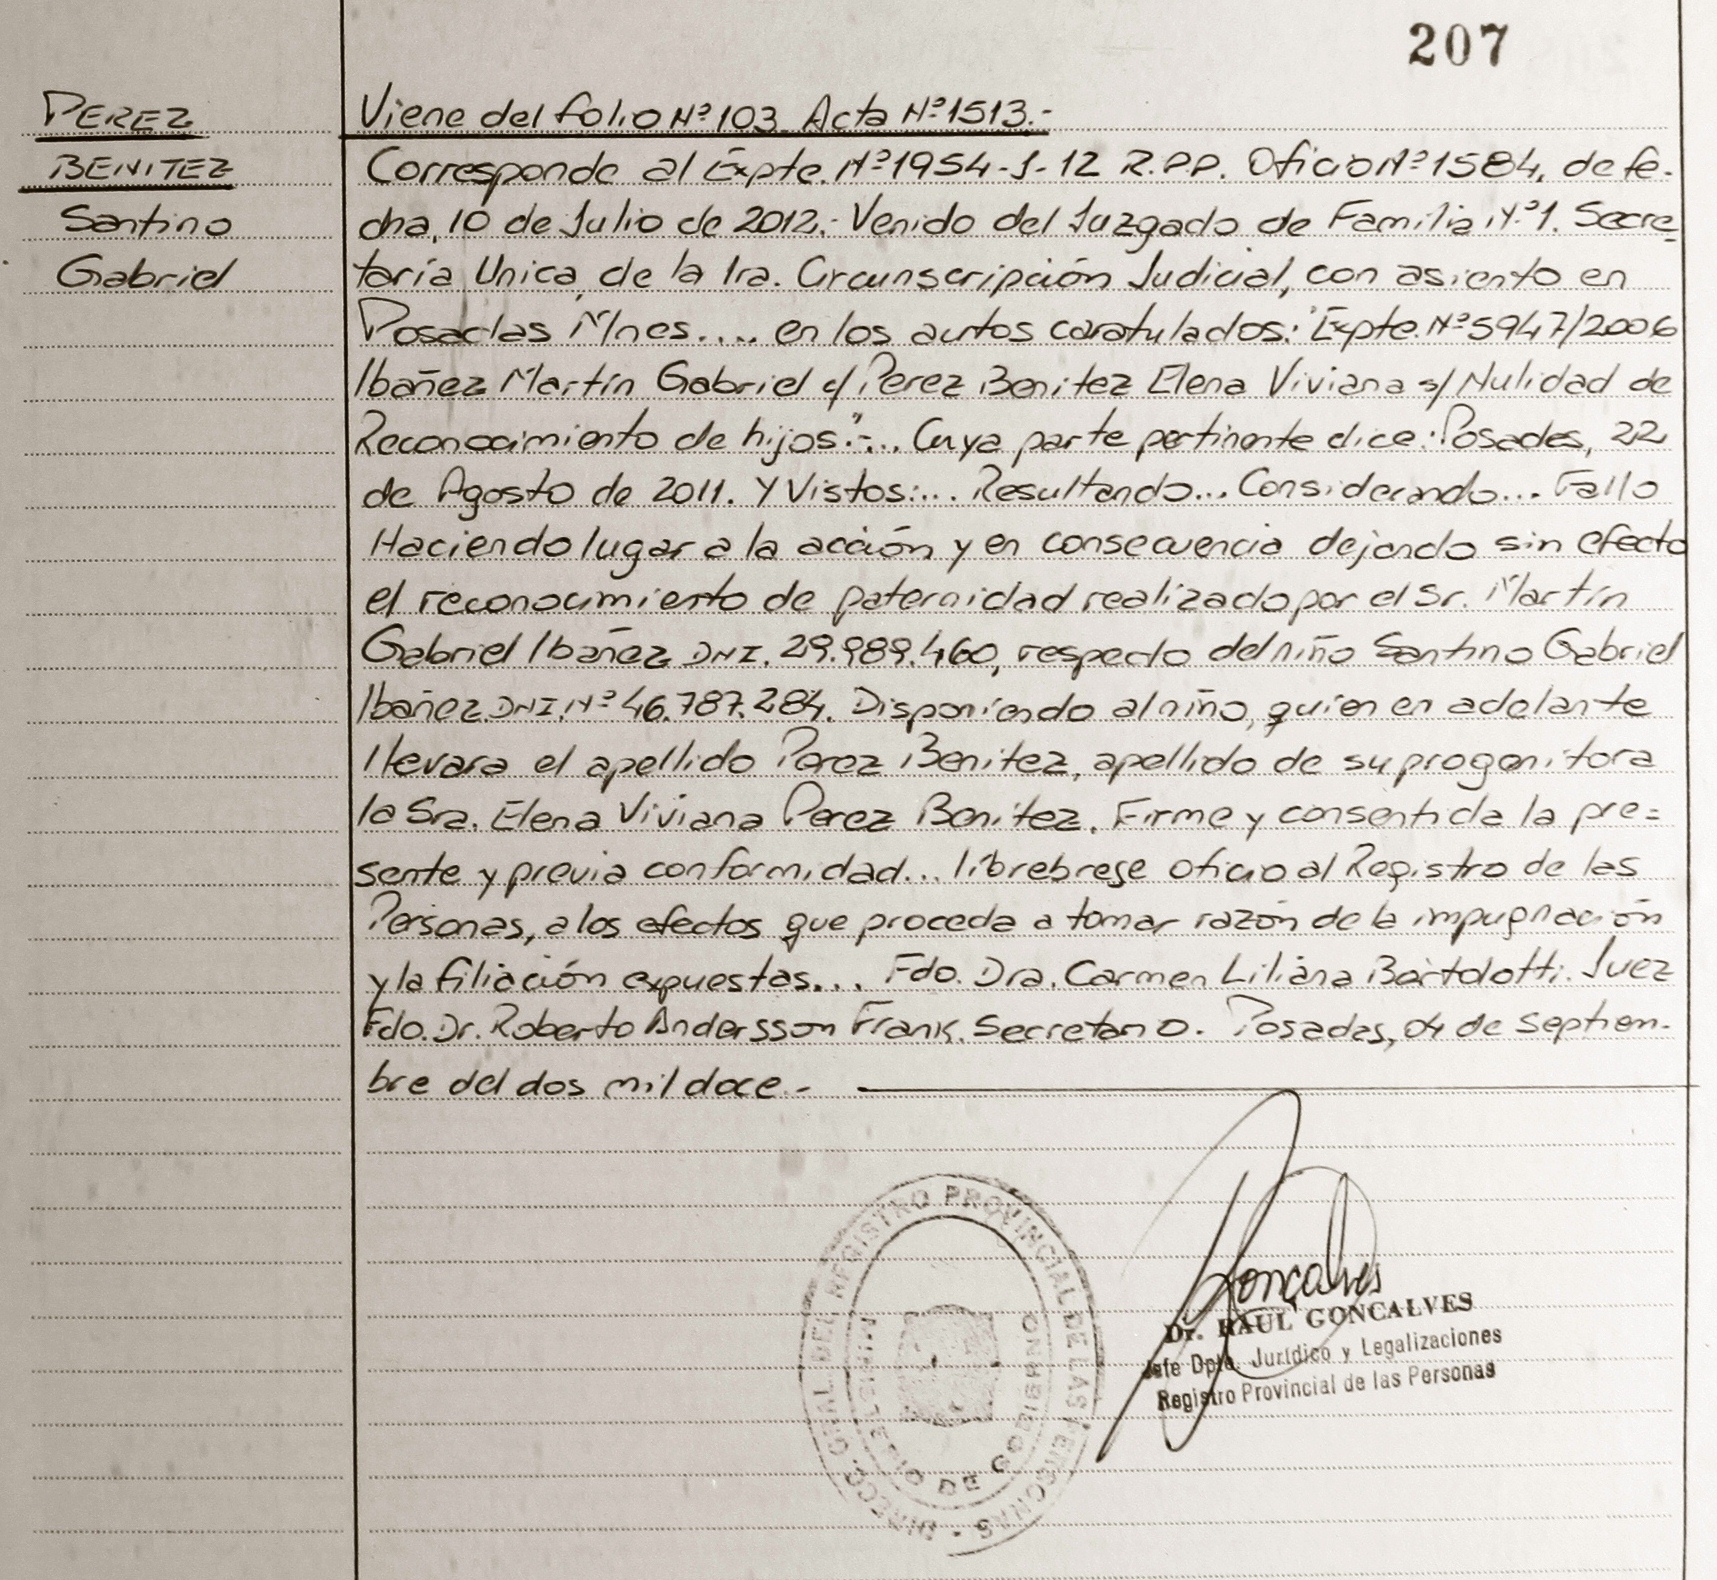 207
PEREZ
BENITEZ
Santino
Gabriel
Viene del folio Nº 103 Acta Nº 1513.-
Corresponde al Expte. Nº 1954-J-12 R.P.P. Oficio Nº 1584, de fe-
cha, 10 de Julio de 2012.- Venido del Juzgado de Familia Nº 1. Secre-
taría Unica, de la Ira. Circunscripción Judicial, con asiento en
Posadas Mnes.... en los autos caratulados: "Expte. Nº 5947/2006
Ibañez Martín Gabriel c/ Perez Benitez Elena Viviana s/ Nulidad de
Reconocimiento de hijos."-... Cuya parte pertinente dice: Posadas, 22
de Agosto de 2011. Y Vistos:... Resultando... Considerando... Fallo
Haciendo lugar a la acción y en consecuencia dejando sin efecto
el reconocimiento de paternidad realizado por el Sr. Martín
Gabriel Ibañez DNI. 29.989.460, respecto del niño Santino Gabriel
Ibañez DNI. Nº 46.787.284. Disponiendo al niño, quien en adelante
llevara el apellido Perez Benitez, apellido de su progenitora
la Sra. Elena Viviana Perez Benitez. Firme y consentida la pre=
sente y previa conformidad... librebrese oficio al Registro de las
Personas, a los efectos que proceda a tomar razón de la impugnación
y la filiación expuestas... Fdo. Dra. Carmen Liliana Bartolotti. Juez
Fdo. Dr. Roberto Andersson Frank. Secretario. Posadas, 04 de Septiem-
bre del dos mil doce.-
DIRECC. GRAL. DEL REGISTRO PROVINCIAL DE LAS PERSONAS
MINISTERIO DE GOBIERNO
Gonçalves
Dr. RAUL GONCALVES
Jefe Dpto. Jurídico y Legalizaciones
Registro Provincial de las Personas